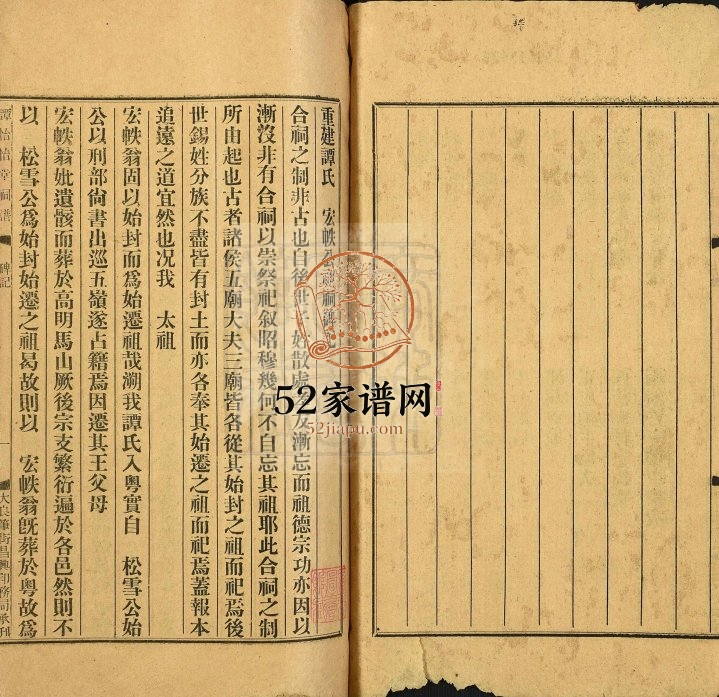 重建譚氏 宏帙
合祠之制非古也自後世
散處
漸忘而祖德宗功亦因以
漸沒非有合祠以崇祭祀叙昭穆幾何不自忘其祖耶此合祠之制
所由起也古者諸侯五廟大夫三廟皆各從其始封之祖而祀焉後
世錫姓分族不盡皆有封土而亦各奉其始遷之祖而祀焉蓋報本
追遠之道宜然也况我 太祖
宏帙翁固以始封而爲始遷祖哉溯我譚氏入粵實自 松雪公始
公以刑部尙書出巡五嶺遂占籍焉因遷其王父母
宏帙翁妣遺骸而葬於高明馬山厥後宗支繁衍遍於各邑然則不
以 松雪公爲始封始遷之祖曷故則以 宏帙翁旣葬於粵故爲
譚怡怡堂祠譜
碑記
一
大良華街昌興印務局承刊
52家谱网
52jiapu.com